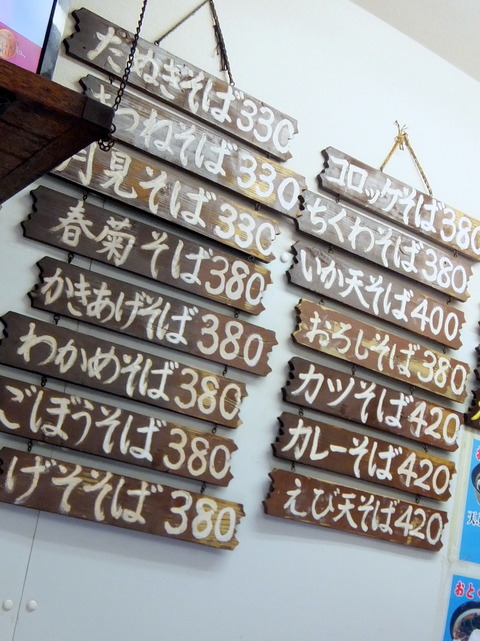 だねぎそば330
きつねそば330
月見そば330
春菊そば380
かきあげそば380
わかめそば380
ごぼうそば380
げそそば380
コロッケそば380
ちくわそば380
いか天そば400
おろしそば380
カツそば420
カレーそば420
えび天そば420